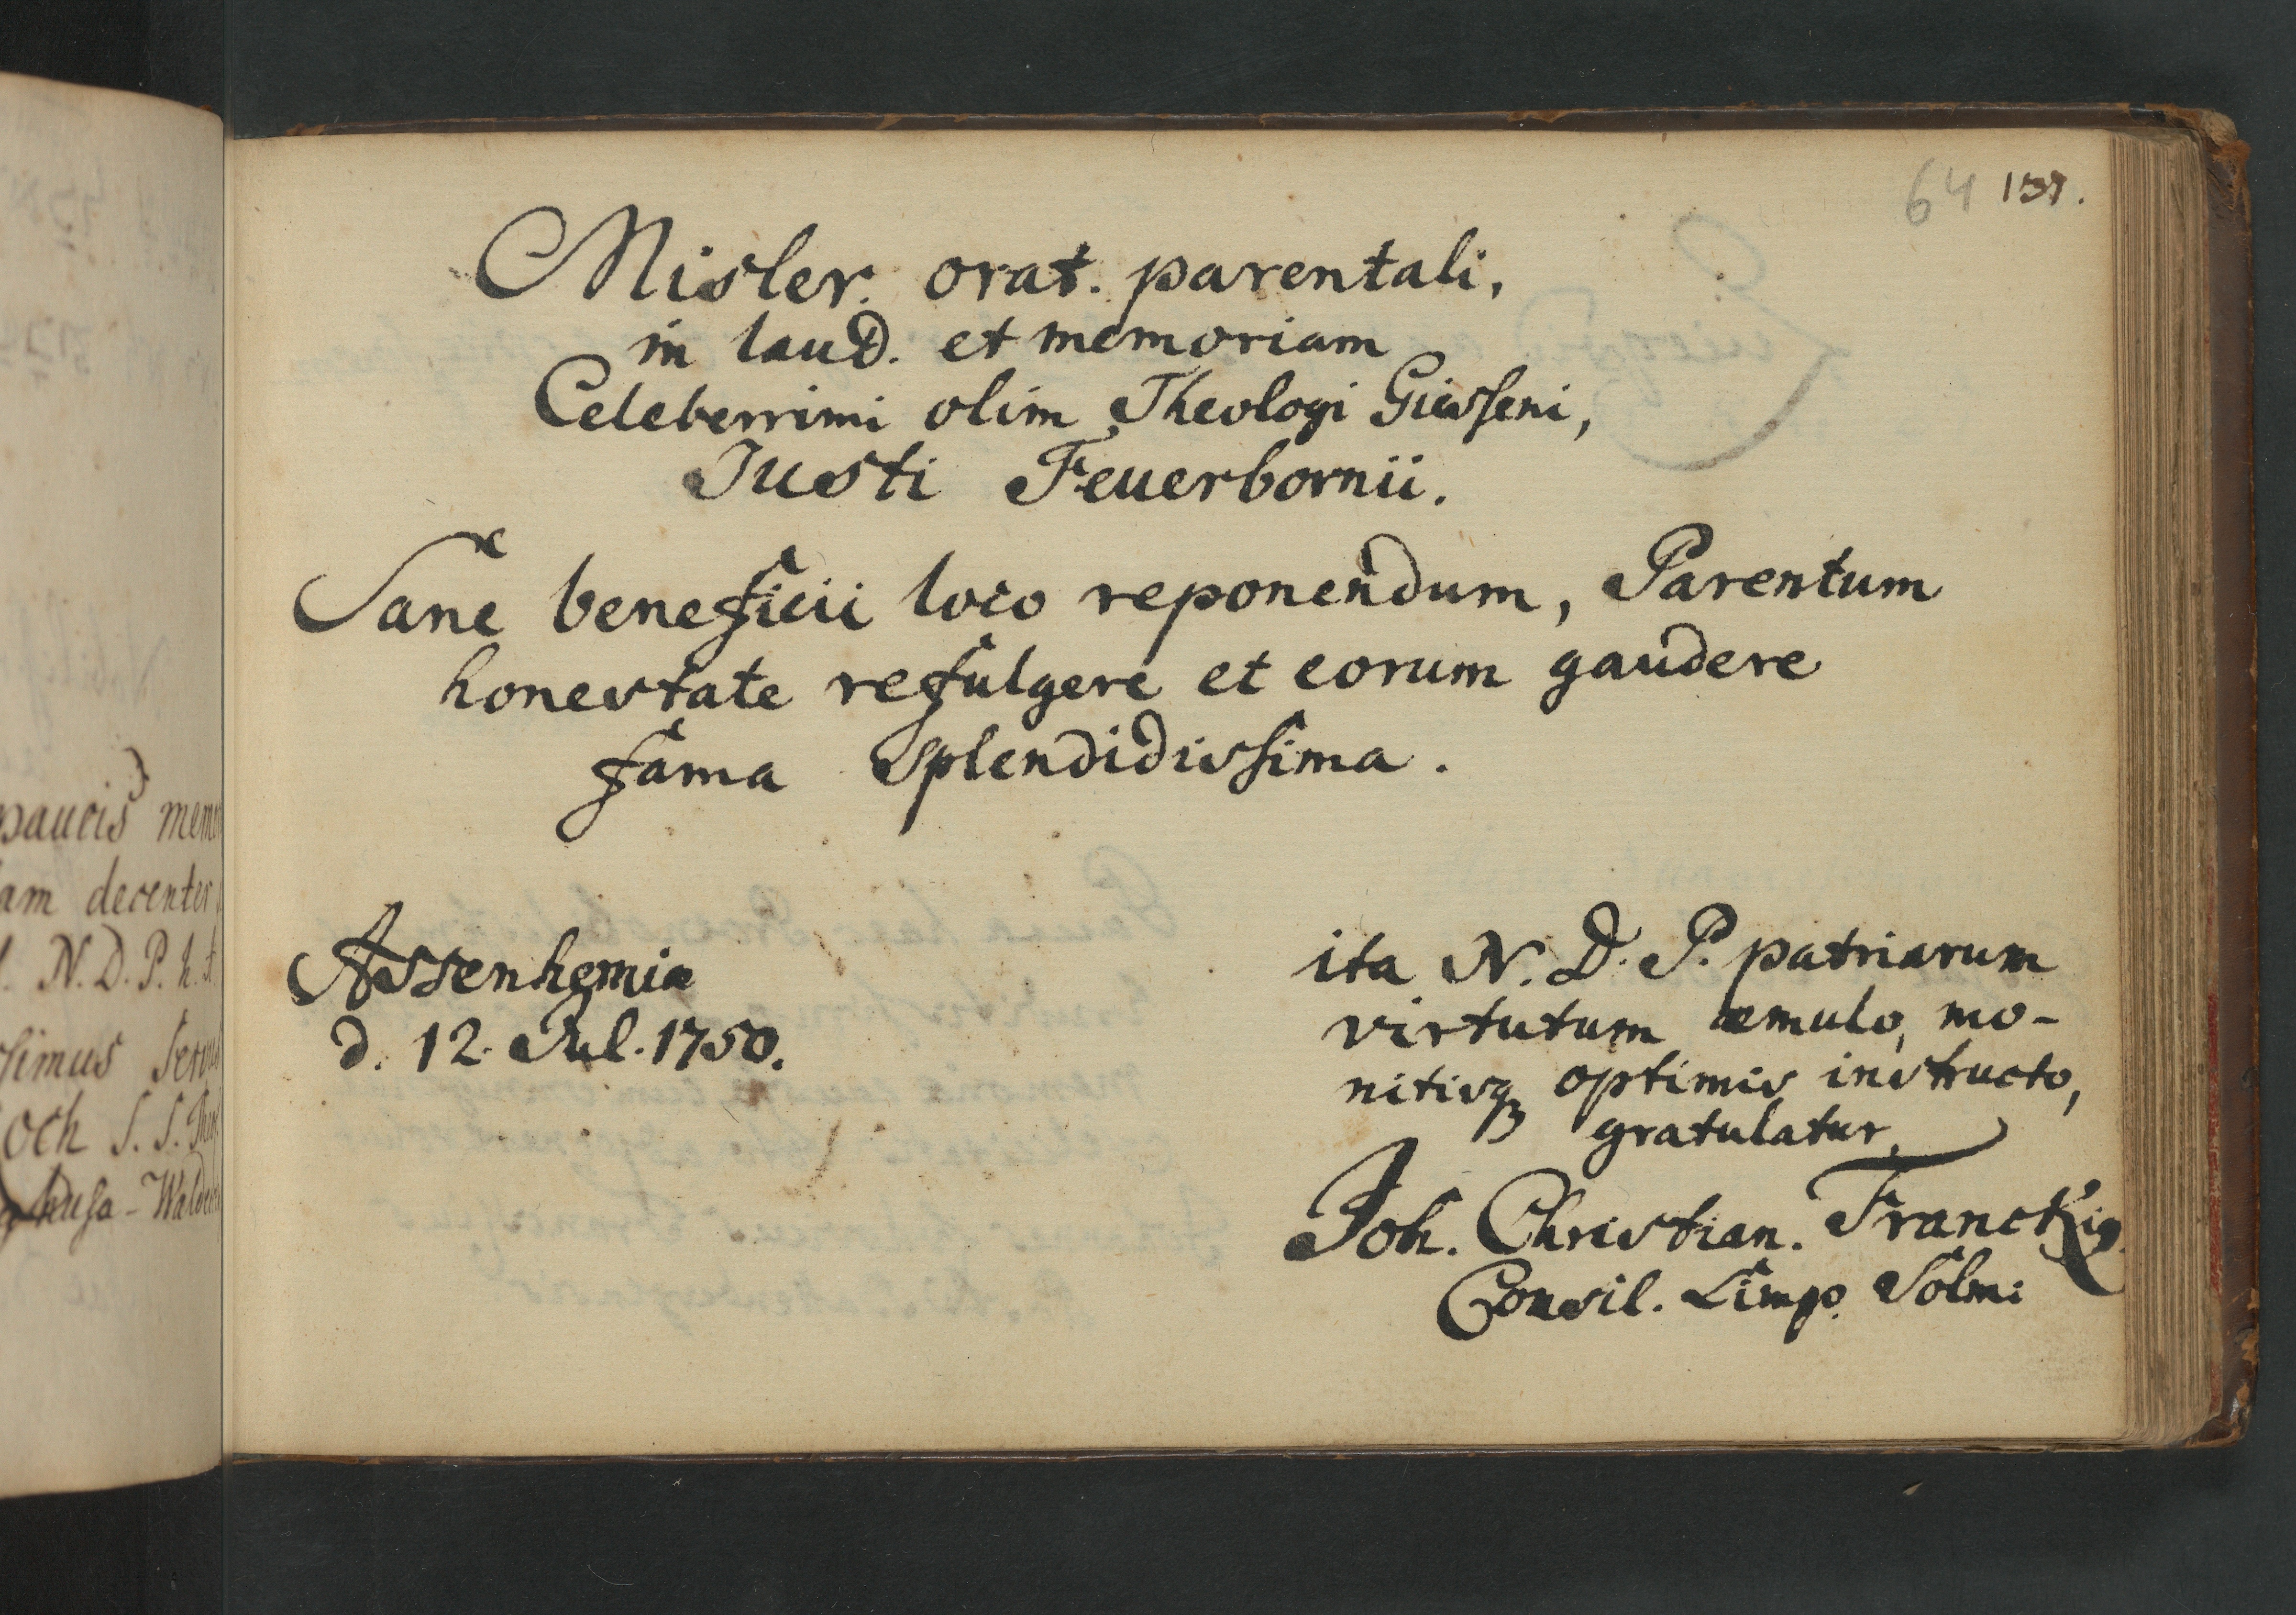 64 137.
Misler. orat. parentali,
in laud. et memoriam
Celeberrimi olim Theologi Giesseni,
Justi Feuerbornii.
Sane beneficii loco reponendum, Parentum
honestate refulgere et eorum gaudere
fama splendidissima.
Assenhemiæ
d. 12. Jul. 1750.
ita N. D. P. patriarum
virtutum æmulo, mo-
nitisq; optimis instructo,
gratulatur
Joh. Christian.
Consil. Limp. Solm:
paucis
decenter
N. D. P. h.